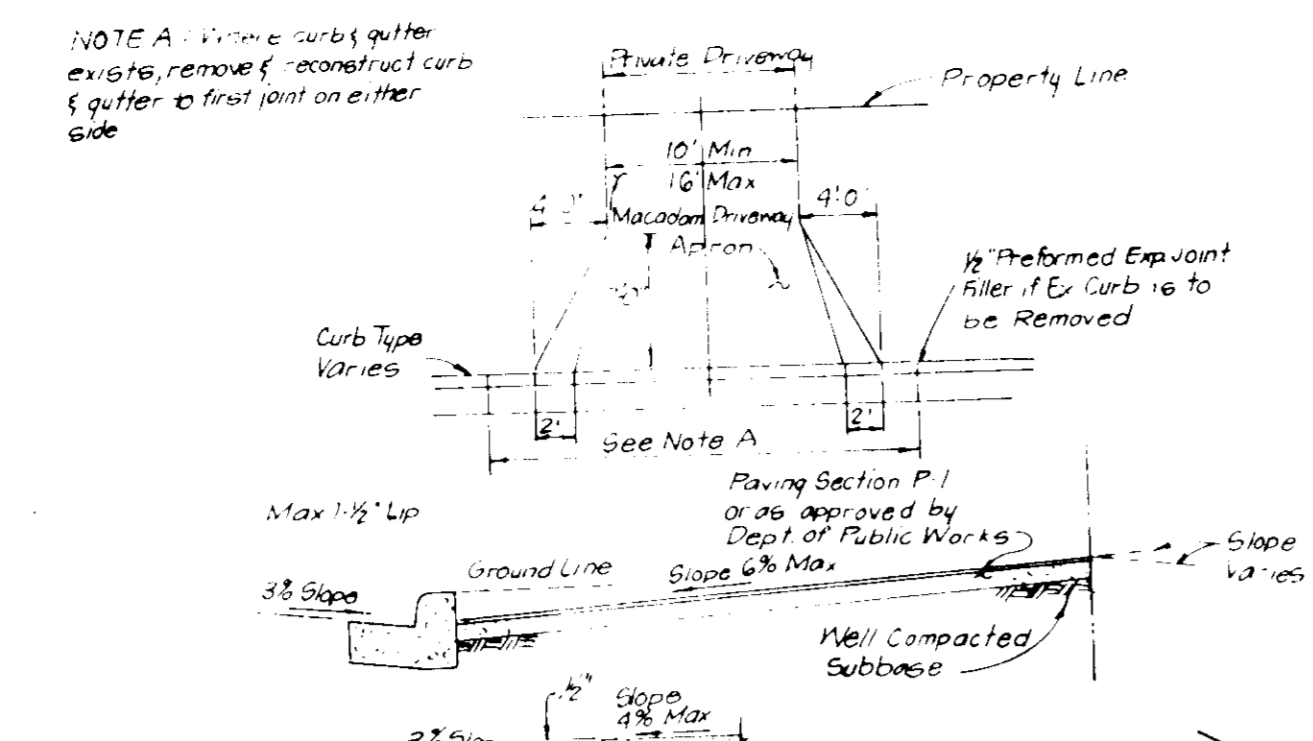 NOTE A : Where curb & gutter
exists, remove & reconstruct curb
& gutter to first joint on either
side
Private Driveway
Property Line
10' Min
16' Max
4'0"
Macadam Driveway
Apron
1/2" Preformed Exp Joint
Filler if Ex Curb is to
be Removed
Curb Type
Varies
2'
2'
See Note A
Paving Section P-1
or as approved by
Dept. of Public Works
Max 1-1/2" Lip
Ground Line
Slope 6% Max
Slope
Varies
3% Slope
Well Compacted
Subbase
1/2"
Slope
4% Max